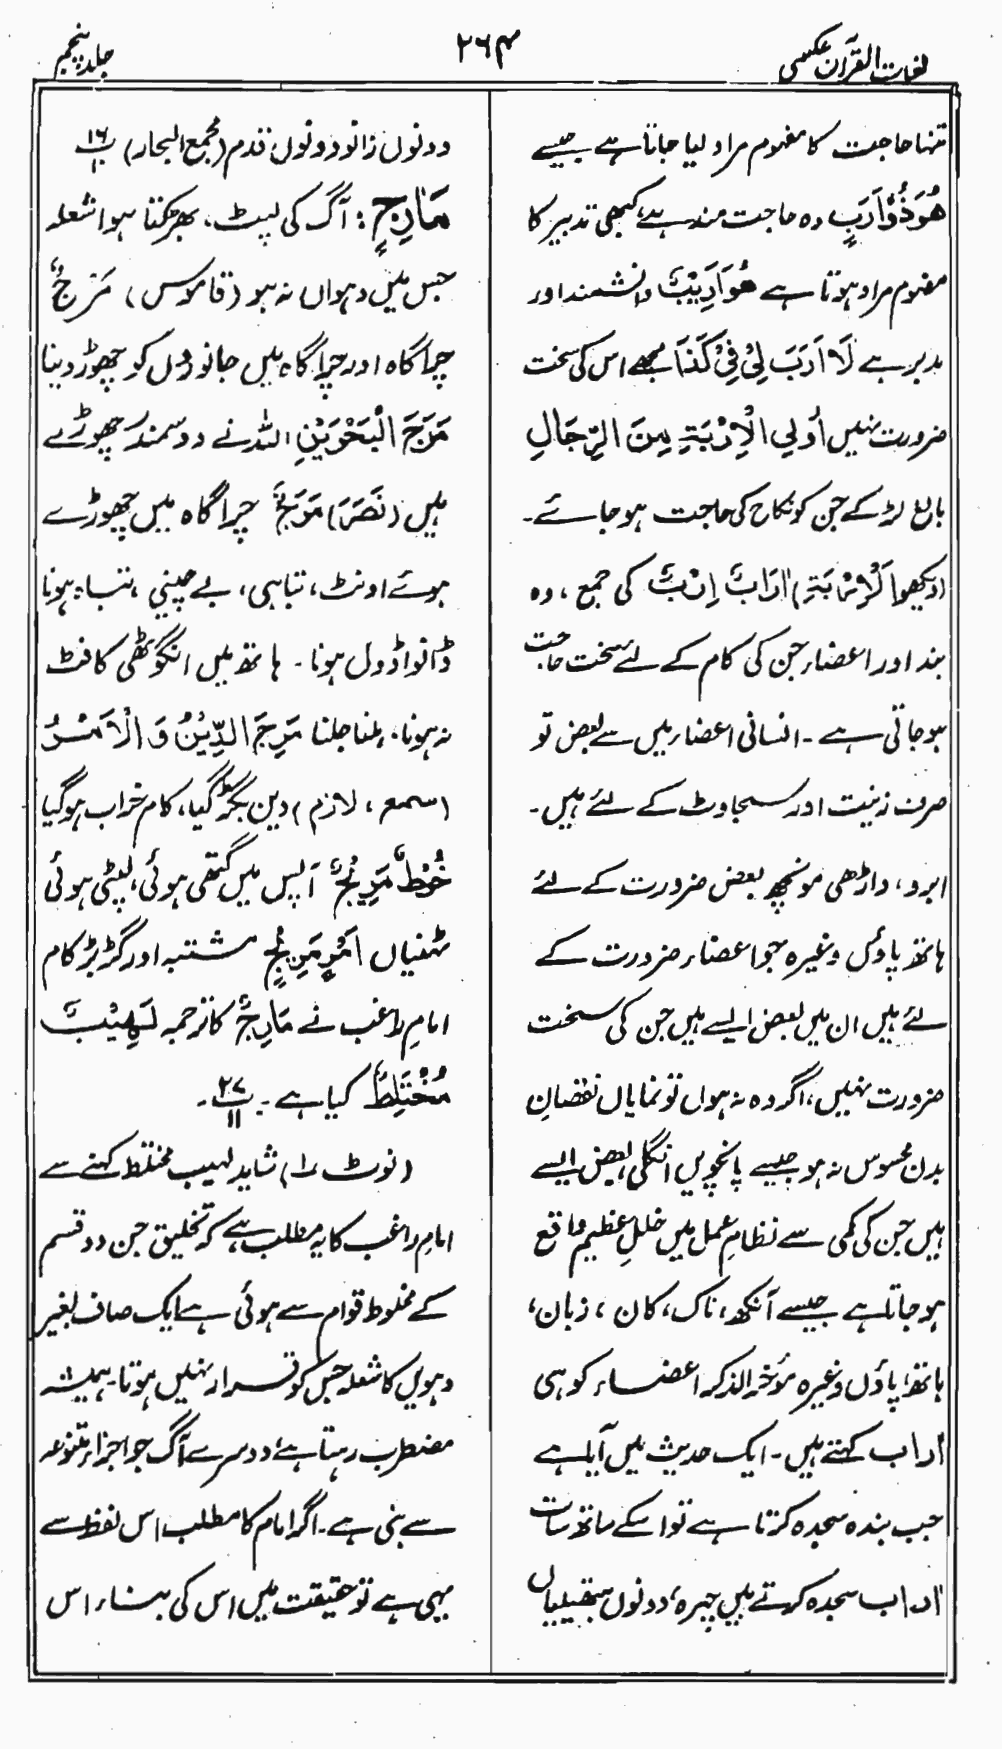 لغات القرآن عکسی
۲۶۴
جلد پنجم
تنہا حاجت کا مفہوم مراد لیا جاتا ہے جیسے
ھُوَ ذُوْ اَرَبٍ وہ حاجت مند ہے، کبھی تدبیر کا
مفہوم مراد ہوتا ہے ھُوَ اَدِیْبٌ دانشمند اور
مدبر ہے لَا اَرَبَ لِیْ فِیْ کَذَا مجھے اس کی سخت
ضرورت نہیں اُولِی الْاِرْبَۃِ مِنَ الرِّجَالِ
بالغ لڑکے جن کو نکاح کی حاجت ہو جائے۔
(دیکھو اَلْاِرْبَۃِ) اٰرَابٌ اِرْبٌ کی جمع، وہ
بند اور اعضاء جن کی کام کے لئے سخت حاجت
ہو جاتی ہے۔ انسانی اعضاء میں سے بعض تو
صرف زینت اور سجاوٹ کے لئے ہیں۔
ابرو، داڑھی مونچھ بعض ضرورت کے لئے
ہاتھ پاؤں وغیرہ جو اعضاء ضرورت کے
لئے ہیں ان میں بعض ایسے ہیں جن کی سخت
ضرورت نہیں، اگر وہ نہ ہوں تو نمایاں نقصانِ
بدن محسوس نہ ہو جیسے پانچویں انگلی، بعض ایسے
ہیں جن کی کمی سے نظامِ عمل میں خللِ عظیم واقع
ہو جاتا ہے جیسے آنکھ، ناک، کان، زبان،
ہاتھ، پاؤں وغیرہ مؤخر الذکر اعضاء کو ہی
اٰراب کہتے ہیں۔ ایک حدیث میں آیا ہے
جب بندہ سجدہ کرتا ہے تو اسکے ساتھ سات
اٰراب سجدہ کرتے ہیں چہرہ، دونوں ہتھیلیاں
دونوں زانو دونوں قدم (مجمع البحار) ۱۶ پ ۱۰
مَارِجٍ: آگ کی لپٹ، بھڑکتا ہوا شعلہ
جس میں دہواں نہ ہو (قاموس) مَرْجٌ
چراگاہ اور چراگاہ میں جانوروں کو چھوڑ دینا
مَرَجَ الْبَحْرَیْنِ اللہ نے دو سمندر چھوڑے
ہیں (نَصَرَ) مَرَجٌ چراگاہ میں چھوڑے
ہوئے اونٹ، تباہی، بے چینی، تباہ ہونا
ڈانواڈول ہونا۔ ہاتھ میں انگوٹھی کا فٹ
نہ ہونا، ہلنا جلنا مَرِجَ الدِّیْنُ وَ الْاَمْرُ
(سمع، لازم) دین بگڑ گیا، کام خراب ہو گیا
خُوْطٌ مَرِیْجٌ آپس میں گتھی ہوئی، لپٹی ہوئی
ٹہنیاں اَمْرٍ مَرِیْجٍ مشتبہ اور گڑبڑ کام
امام راغب نے مَارِجٌ کا ترجمہ لَھِیْبٌ
مُخْتَلِطٌ کیا ہے۔ ۲۷ پ ۱۱۔
(نوٹ ۱) شاید لہیب مختلط کہنے سے
امام راغب کا یہ مطلب ہے کہ تخلیق جن دو قسم
کے مخلوط قوام سے ہوئی ہے ایک صاف بغیر
دہویں کا شعلہ جس کو قرار نہیں ہوتا۔ ہمیشہ
مضطرب رہتا ہے، دوسرے آگ جو اجزاء متنوعہ
سے بنی ہے۔ اگر امام کا مطلب اس لفظ سے
یہی ہے تو حقیقت میں اس کی بناء اس